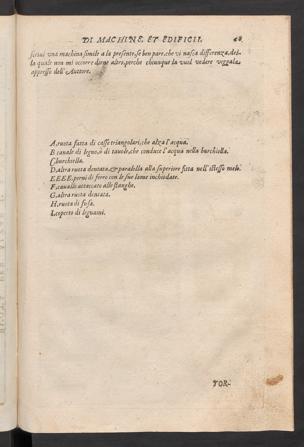 DI MACHINE, ET EDIFICII. 48
scriui vna machina simile a la presente, se ben pare, che vi nasca differenza, del-
la quale non mi occorre dirne altro, perche chiunque la vuol vedere veggala
appresso dell'Auttore.
A, ruota fatta di casse triangolari, che alza l'acqua.
B, canale di legno, ò di tauole, che conduce l'acqua nella burchiella.
C, burchiella.
D, altra ruota dentata, & paralella alla superiore fitta nell'istesso
EEEE, perni di ferro con le sue lame inchiodate.
F, cauallo attaccato alle stanghe.
G, altra ruota dentata.
H, ruota di fusa.
I, coperto di legnami.
TOR-